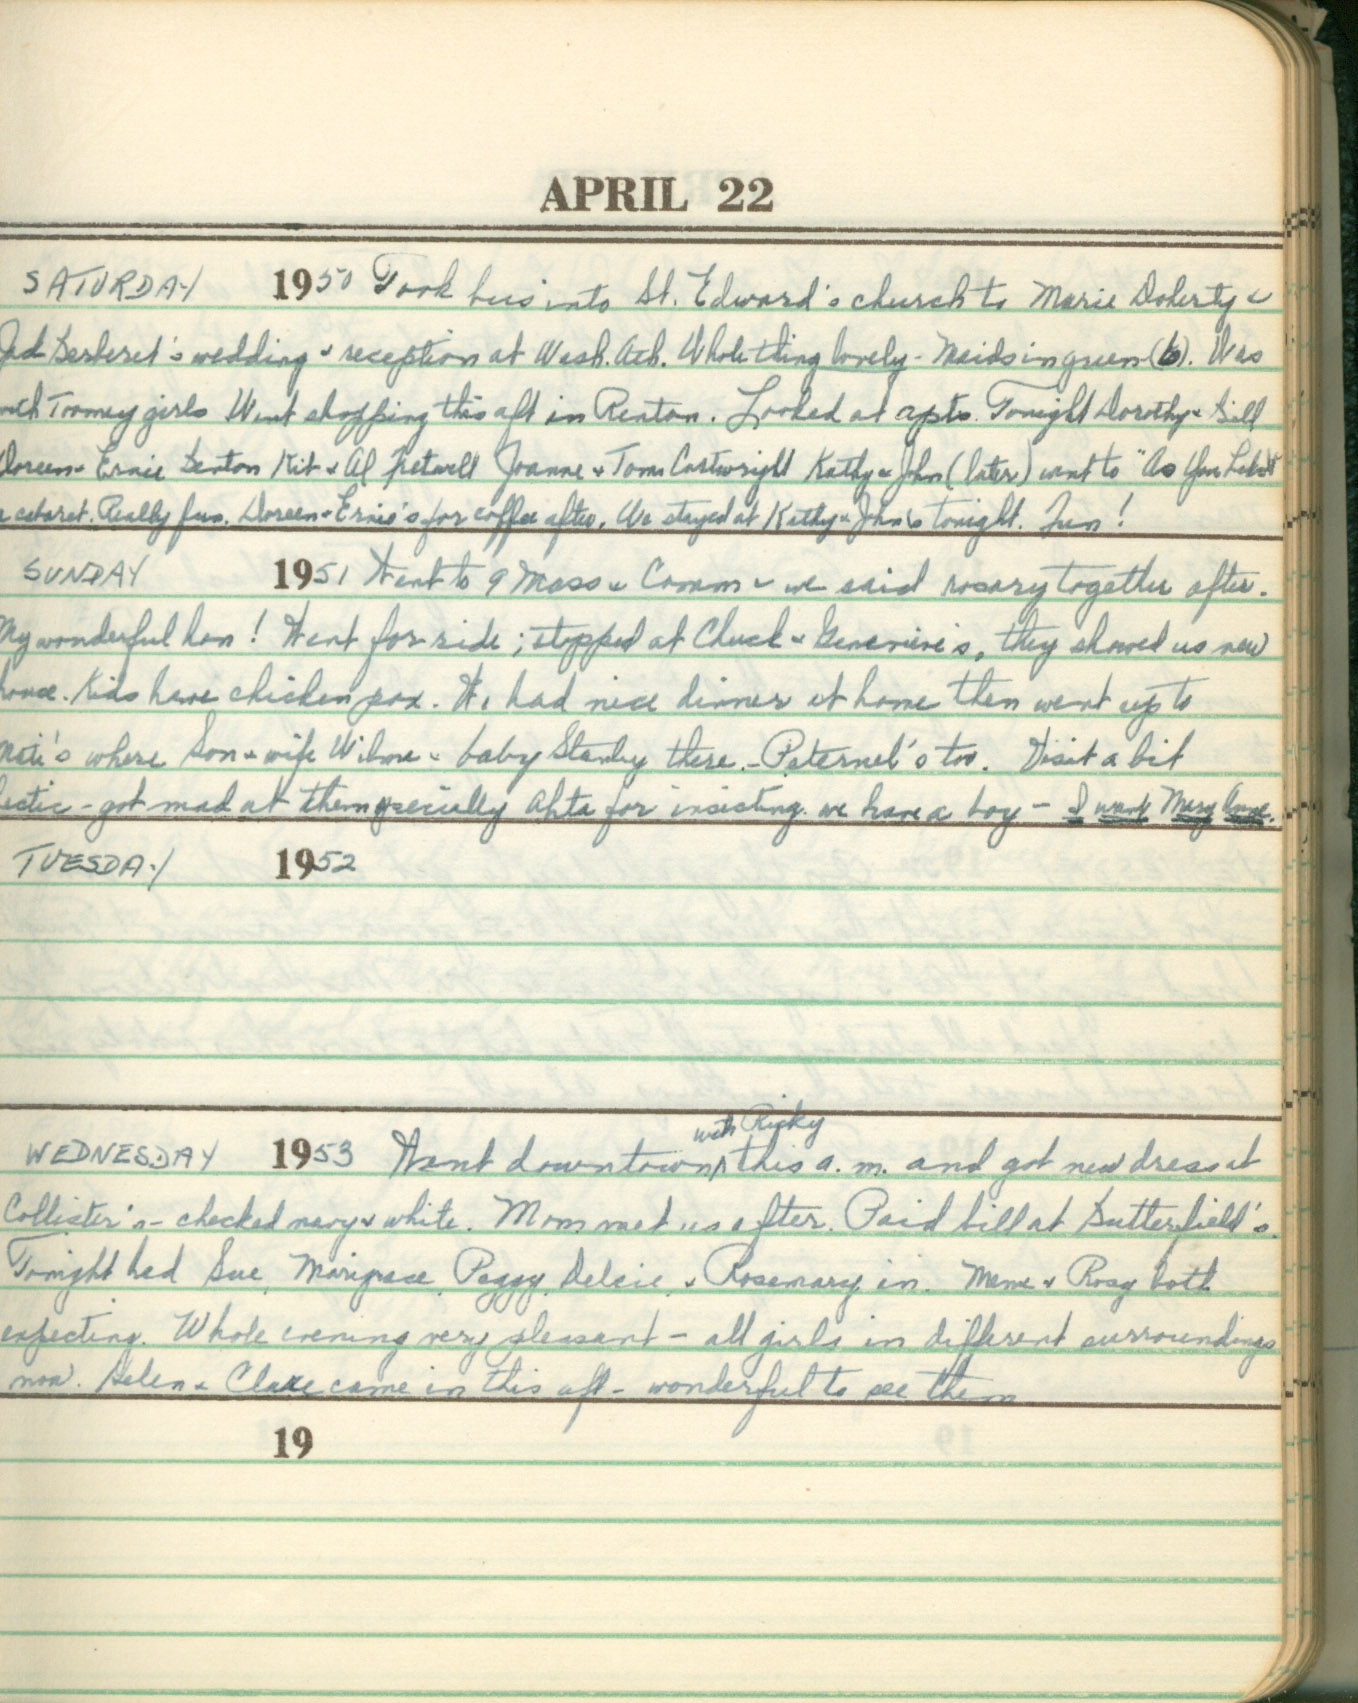 APRIL 22
SATURDAY 1950 Took bus into St. Edward's church to Marie Doherty &
wedding & reception at Wash. Ath. Whole thing lovely - Maids in green (6). Was
Toomey girls Went shopping this aft in Renton. Looked at apts. Tonight Dorothy & Bill
Doreen & Ernie Benton Kit & Al Fretwell Joanne & Tom Cartwright Kathy & John (later) went to "As You Like It"
cabaret. Really fun. Doreen & Ernie's for coffee after. We stayed at Kathy & John's tonight. Fun!
SUNDAY 1951 Went to 9 Mass & Comm & we said rosary together after.
My wonderful hon! Went for ride; stopped at Chuck & Genevieve's, they showed us new
house. Kids have chicken pox. We had nice dinner at home then went up to
where Son & wife Wilma & baby Stanley there. - Paternel's too. Visit a bit
hectic - got mad at them especially for insisting we have a boy - I want Mary Anne.
TUESDAY 1952
with Ricky
WEDNESDAY 1953 Went downtown ^ this a.m. and got new dress at
Collister's - checked navy & white. Mom met us after. Paid bill at Butterfield's.
Tonight had Sue, Marigrace, Peggy, Delcie, & Rosemary in. & Rosy both
expecting. Whole evening very pleasant - all girls in different surroundings
now. Helen & Clare came in this aft - wonderful to see them
19